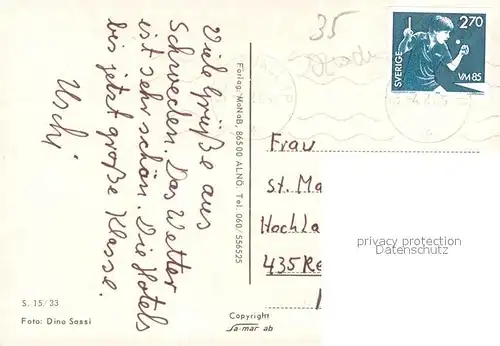 Viele Grüße aus
Schweden. Das Wetter
ist sehr schön. Die Hotels
bis jetzt große Klasse.
Uschi
Förlag: MaNaB 86500 ALNÖ. Tel. 060/556525
35
SVERIGE
2.70
VM85
Frau
St. Ma
Hochla
435 Re
privacy protection
Datenschutz
S. 15/33
Foto: Dino Sassi
Copyright
Sa-mar ab